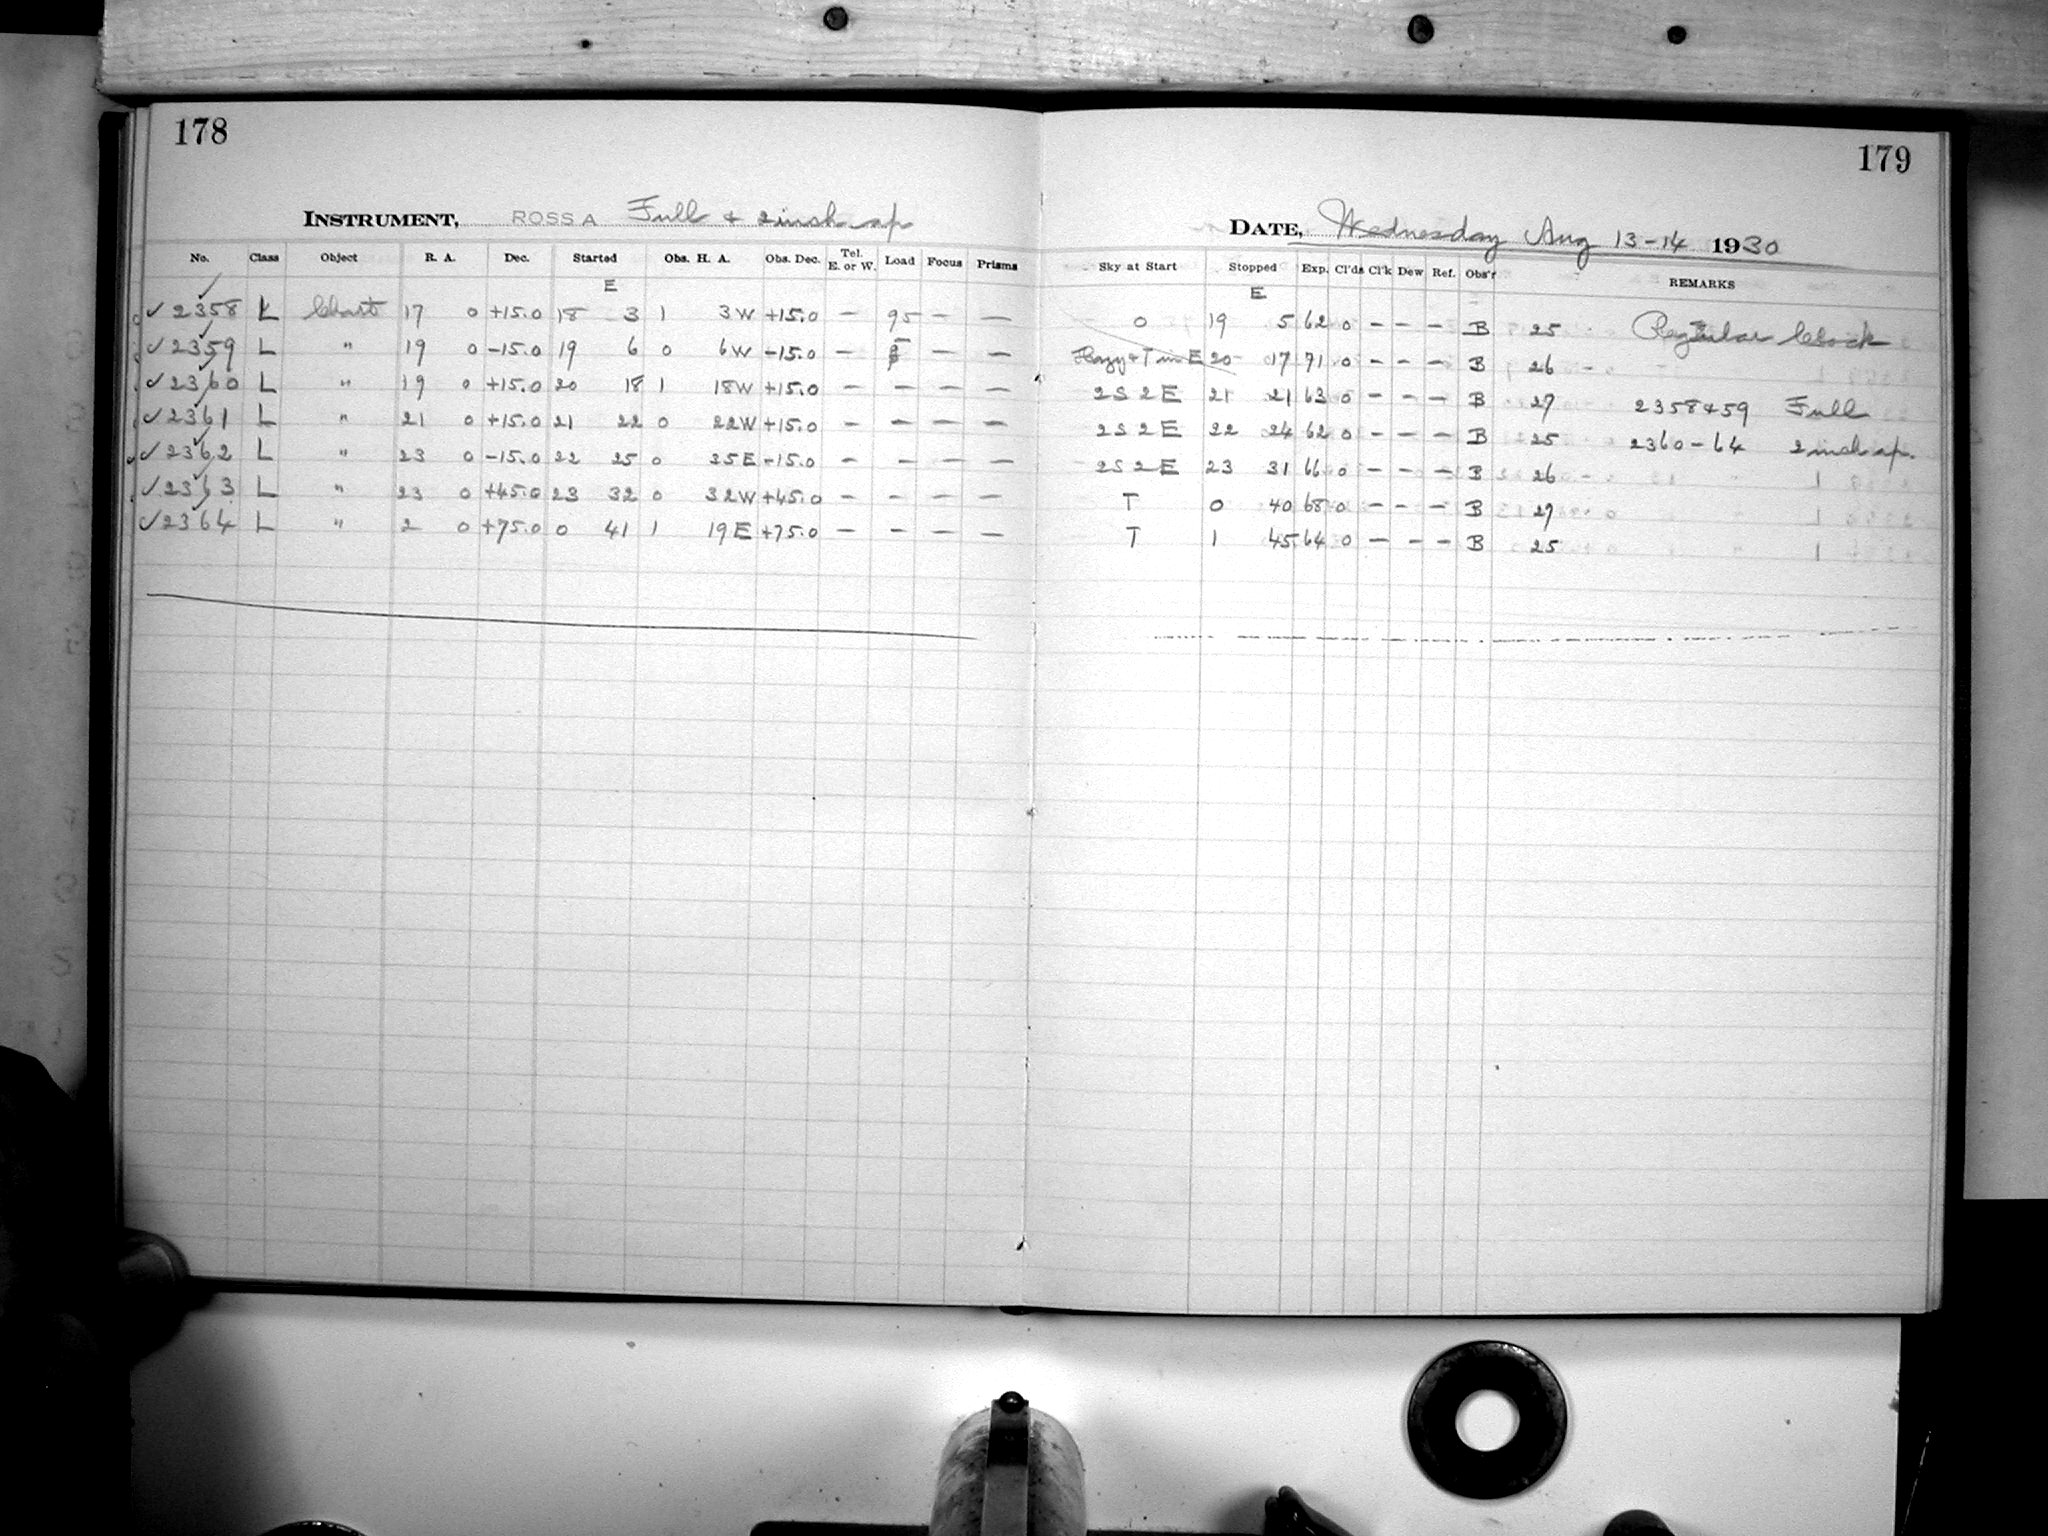 178
INSTRUMENT, ROSS A Full + 2 inch ap
No. Class Object R. A. Dec. Started Obs. H. A. Obs. Dec. Tel. E. or W. Load Focus Prisms
E
✓ 2358 L Chart 17 0 +15.0 18 3 1 3W +15.0 — 95 — —
✓ 2359 L " 19 0 -15.0 19 6 0 6W -15.0 — — —
✓ 2360 L " 19 0 +15.0 20 18 1 18W +15.0 — — — —
✓ 2361 L " 21 0 +15.0 21 22 0 22W +15.0 — — — —
✓ 2362 L " 23 0 -15.0 22 25 0 35E -15.0 — — — —
✓ 2363 L " 23 0 +45.0 23 32 0 32W +45.0 — — — —
✓ 2364 L " 2 0 +75.0 0 41 1 19E +75.0 — — — —
179
DATE, Wednesday Aug 13-14 1930
Sky at Start Stopped Exp. Cl'ds Cl'k Dew Ref. Obs'r REMARKS
E
0 19 5 62 0 — — — B 25 Regular Clock
Hazy + T in E 20 17 71 0 — — — B 26
2S 2E 21 21 63 0 — — — B 27 2358+59 Full
2S 2E 22 24 62 0 — — — B 25 2360-64 2 inch ap.
2S 2E 23 31 66 0 — — — B 26
T 0 40 68 0 — — — B 27
T 1 45 64 0 — — — B 25